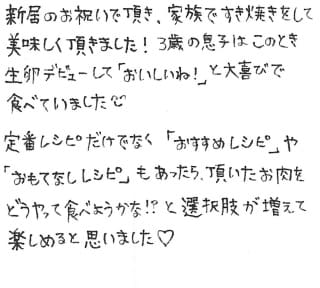 新居のお祝いで頂き、家族ですき焼きをして
美味しく頂きました！3歳の息子はこのとき
生卵デビューして「おいしいね！」と大喜びで
食べていました
定番レシピだけでなく「おすすめレシピ」や
「おもてなしレシピ」もあったら、頂いたお肉を
どうやって食べようかな!?と選択肢が増えて
楽しめると思いました♡